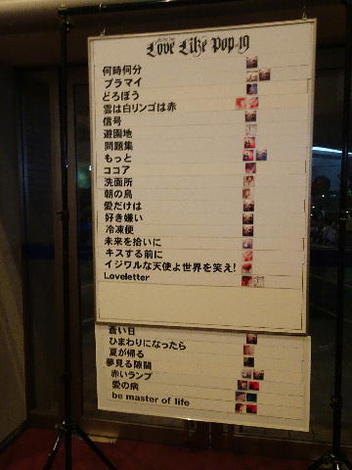 Love Like Pop 19
何時何分
プラマイ
どろぼう
雲は白リンゴは赤
信号
遊園地
問題集
もっと
ココア
洗面所
朝の鳥
愛だけは
好き嫌い
冷凍便
未来を拾いに
キスする前に
イジワルな天使よ世界を笑え!
Loveletter
蒼い日
ひまわりになったら
夏が帰る
夢見る隙間
赤いランプ
愛の病
be master of life